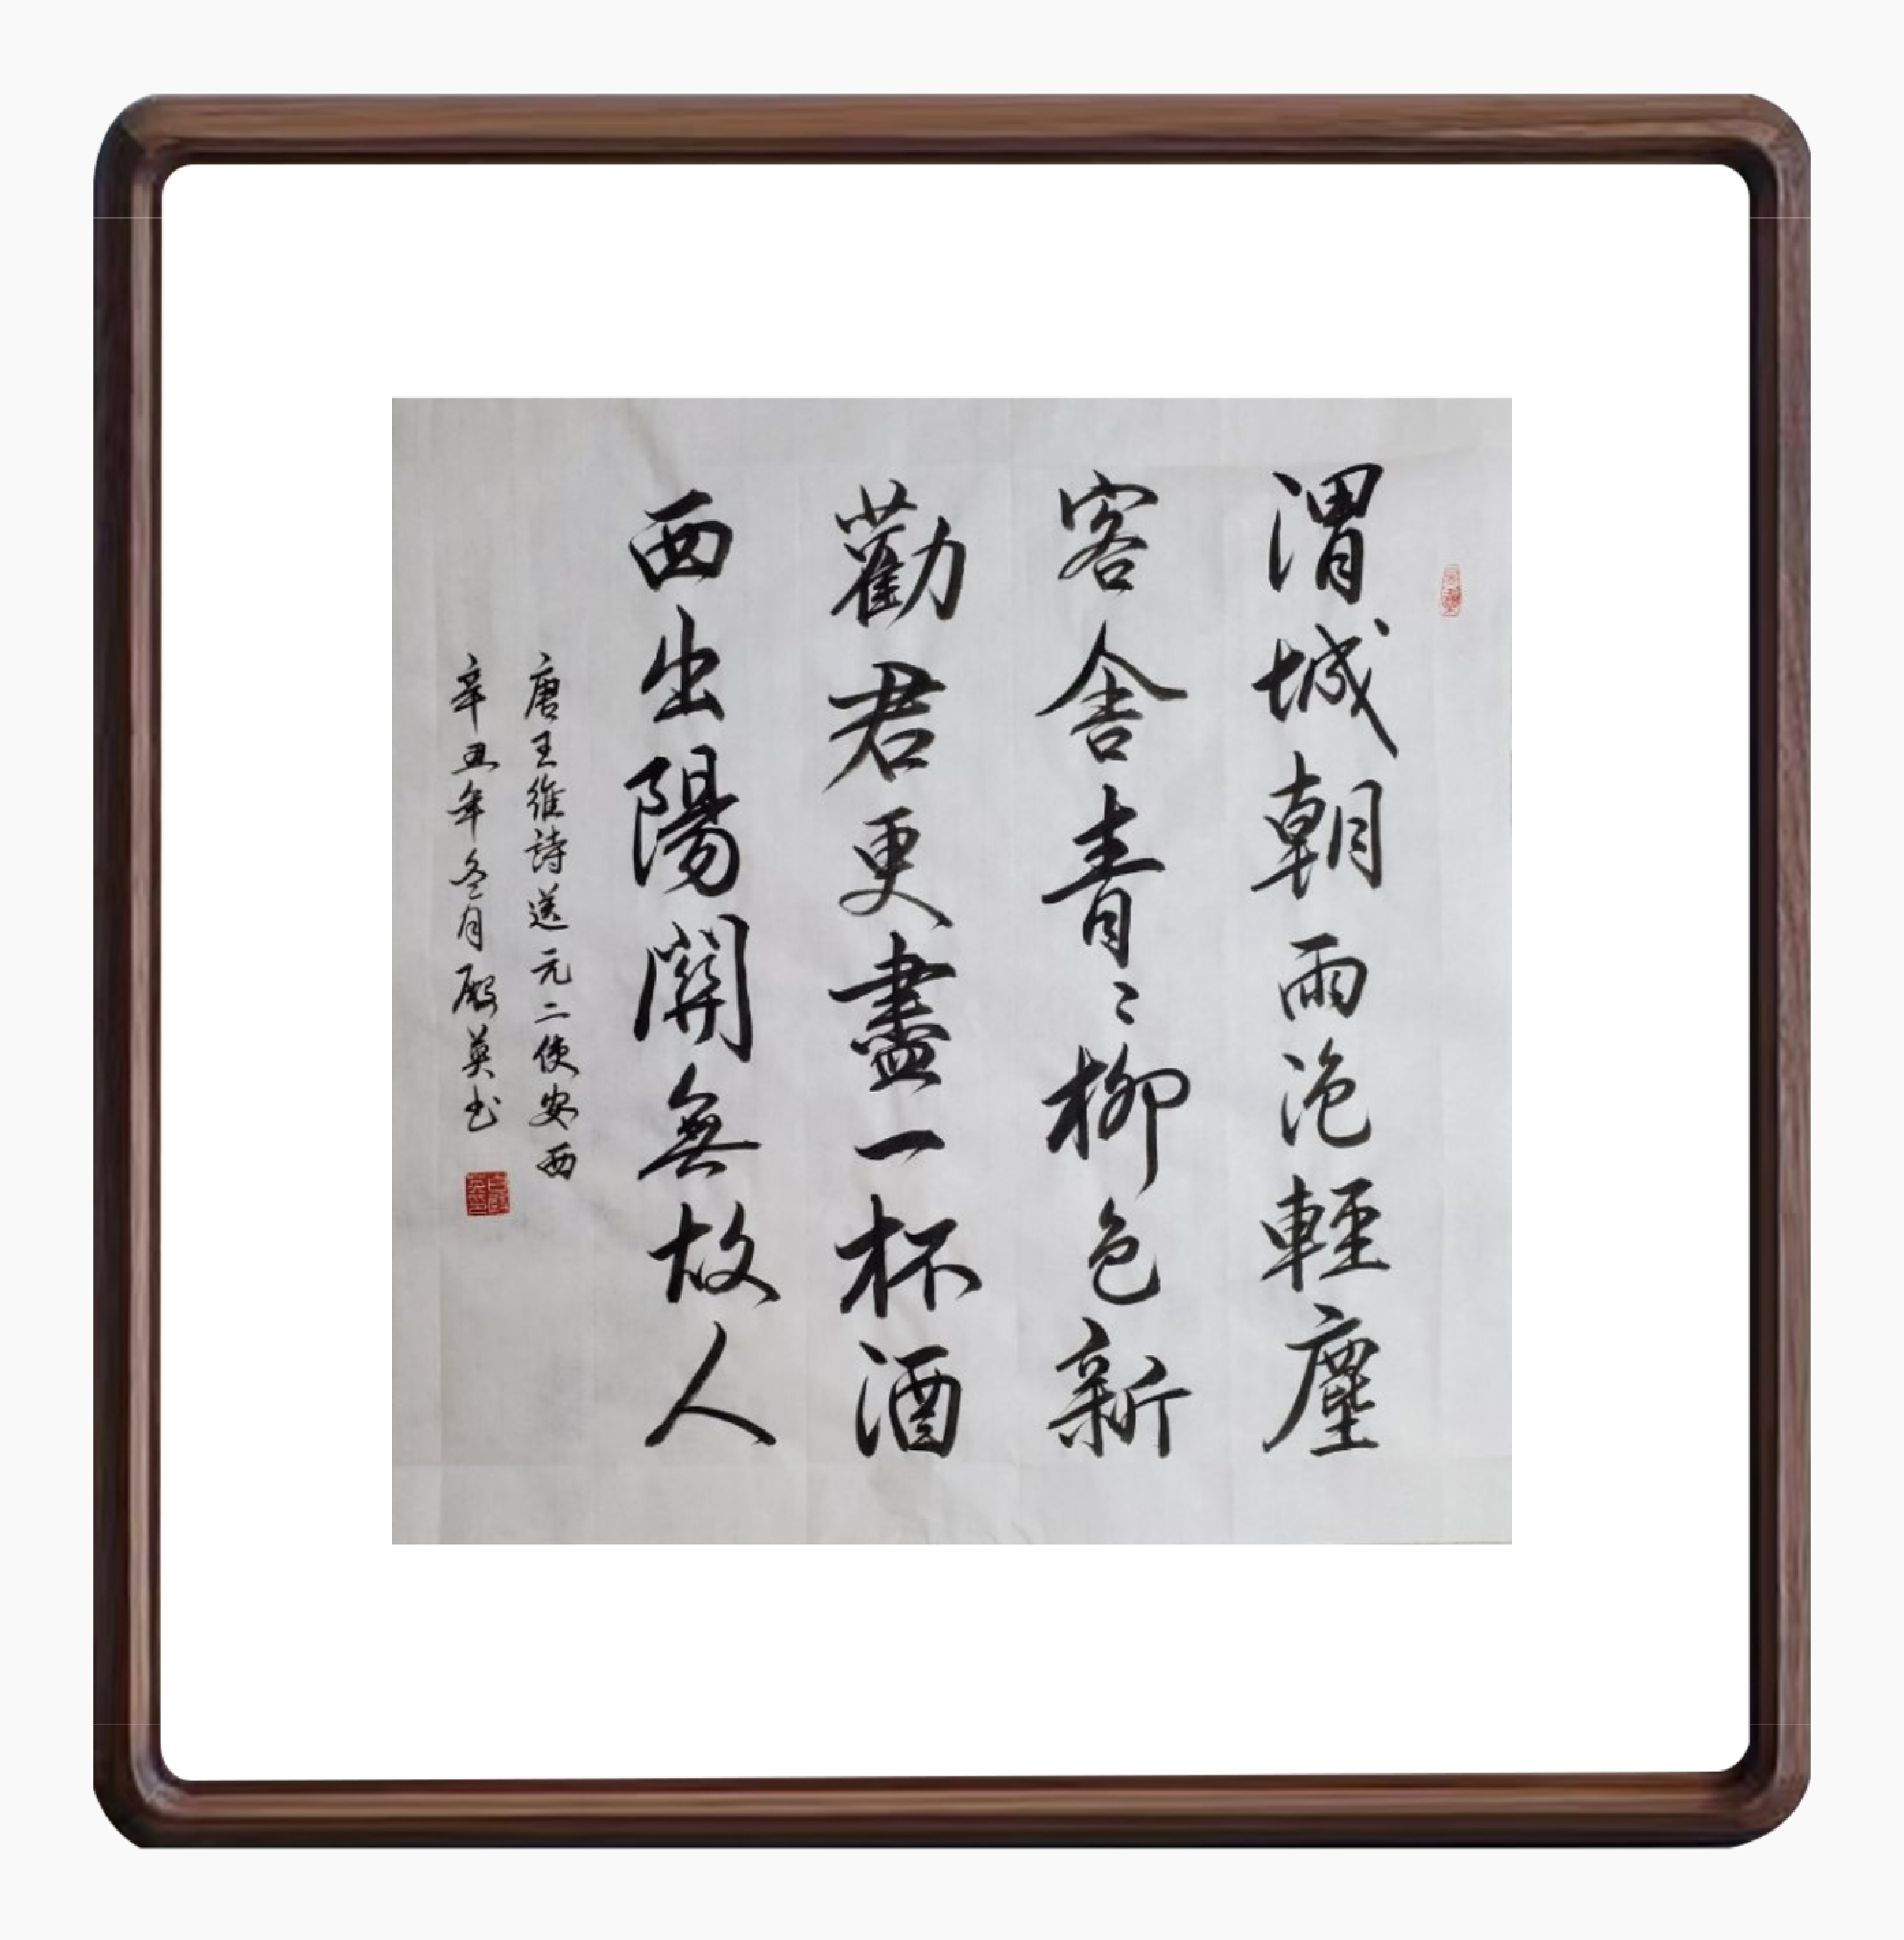 渭城朝雨浥輕塵
客舍青〻柳色新
勸君更盡一杯酒
西出陽關無故人
唐王維詩送元二使安西
辛丑年冬月殿英书